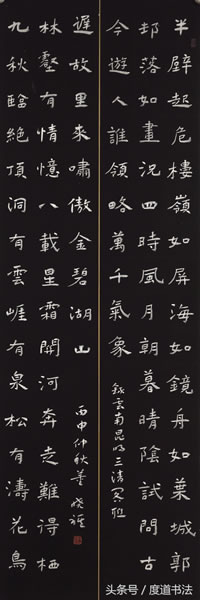 半壁起危樓嶺如屏海如鏡舟如葉城郭
邨落如畫況四時風月朝暮晴陰試問古
今遊人誰領略萬千氣象
錄雲南昆明三清閣聯
九秋臨絕頂洞有雲崖有泉松有濤花鳥
林壑有情憶八載星霜關河奔走難得栖
遲故里來嘯傲金碧湖山
丙申仲秋
头条号 / 度道书法